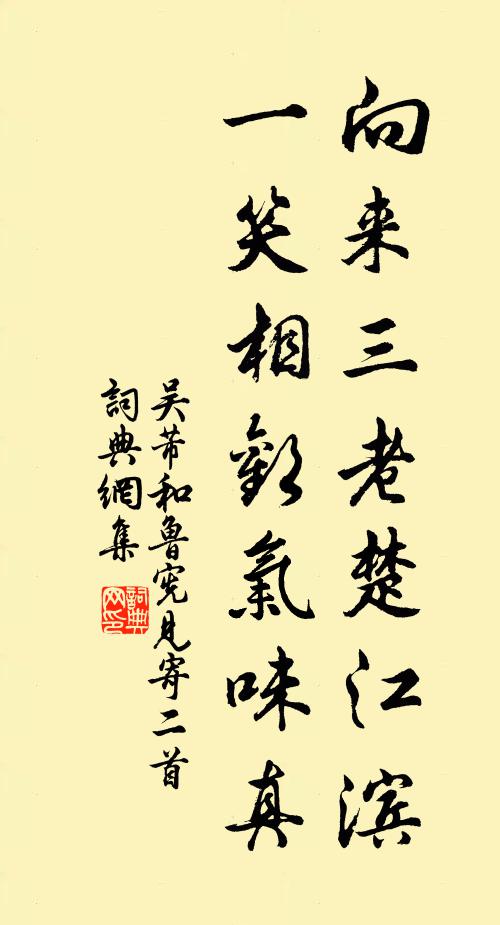 向来三老楚江滨
一笑相歡氣味真
吴芾和魯宪見寄二首
詞典網集
詞典网印